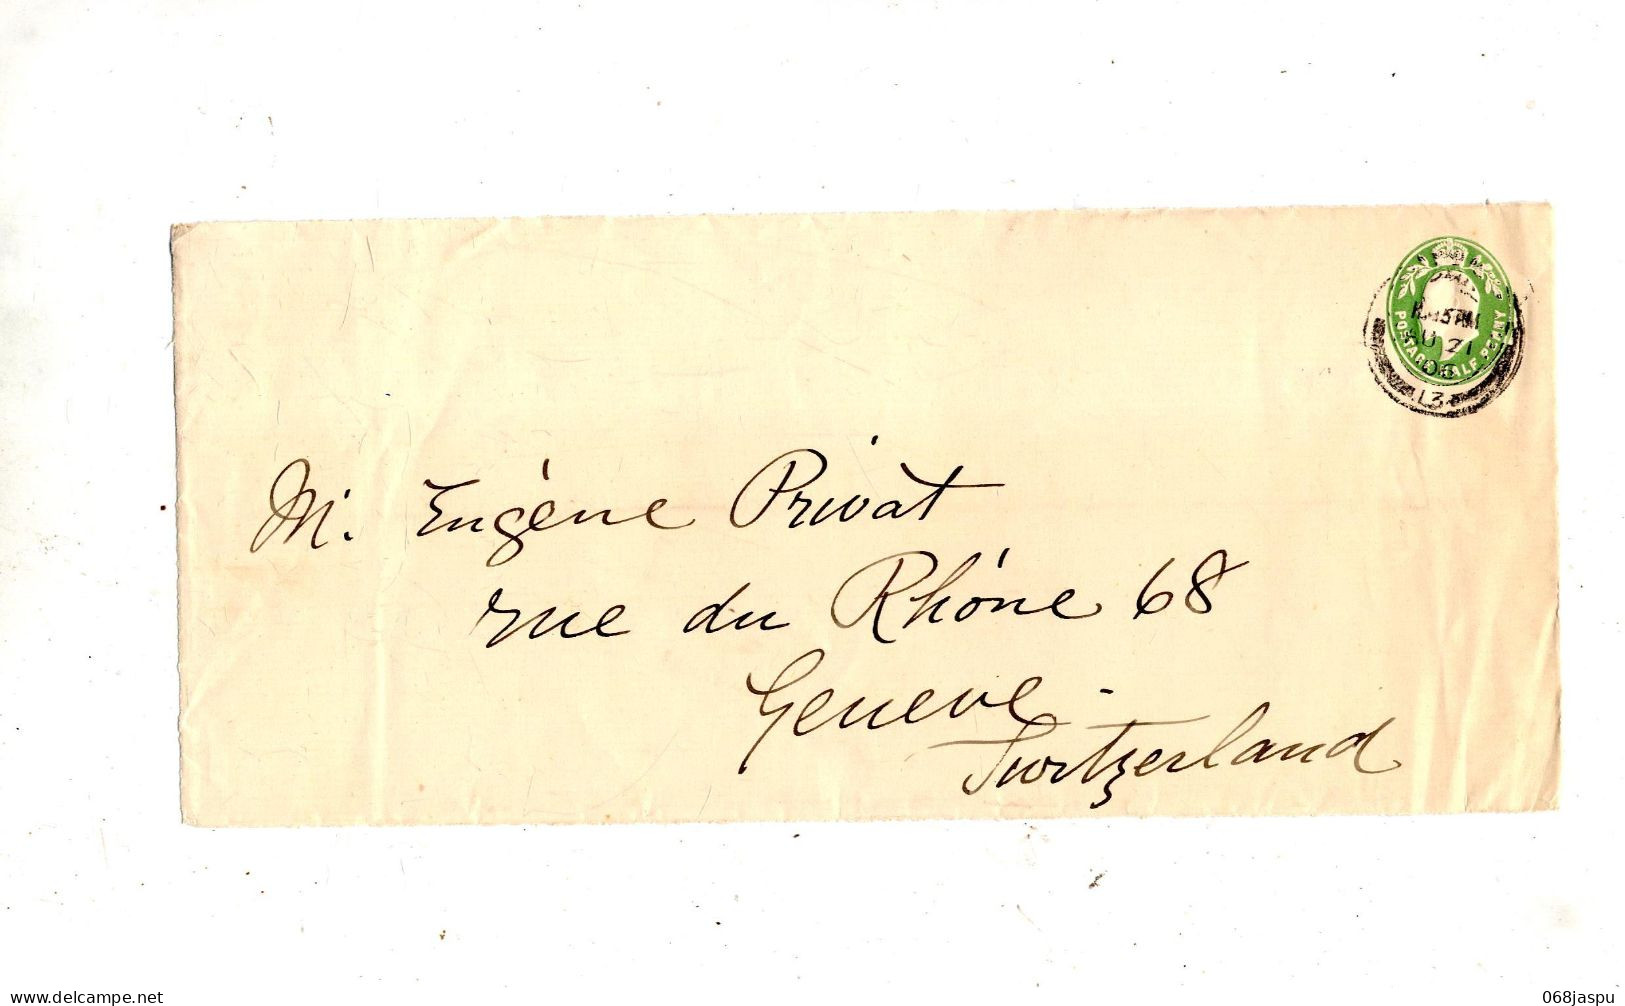 POSTAGE HALF PENNY
AU 21
06
13
M. Eugène Privat
rue du Rhône 68
Geneve.
Switzerland
www.delcampe.net
068jaspu